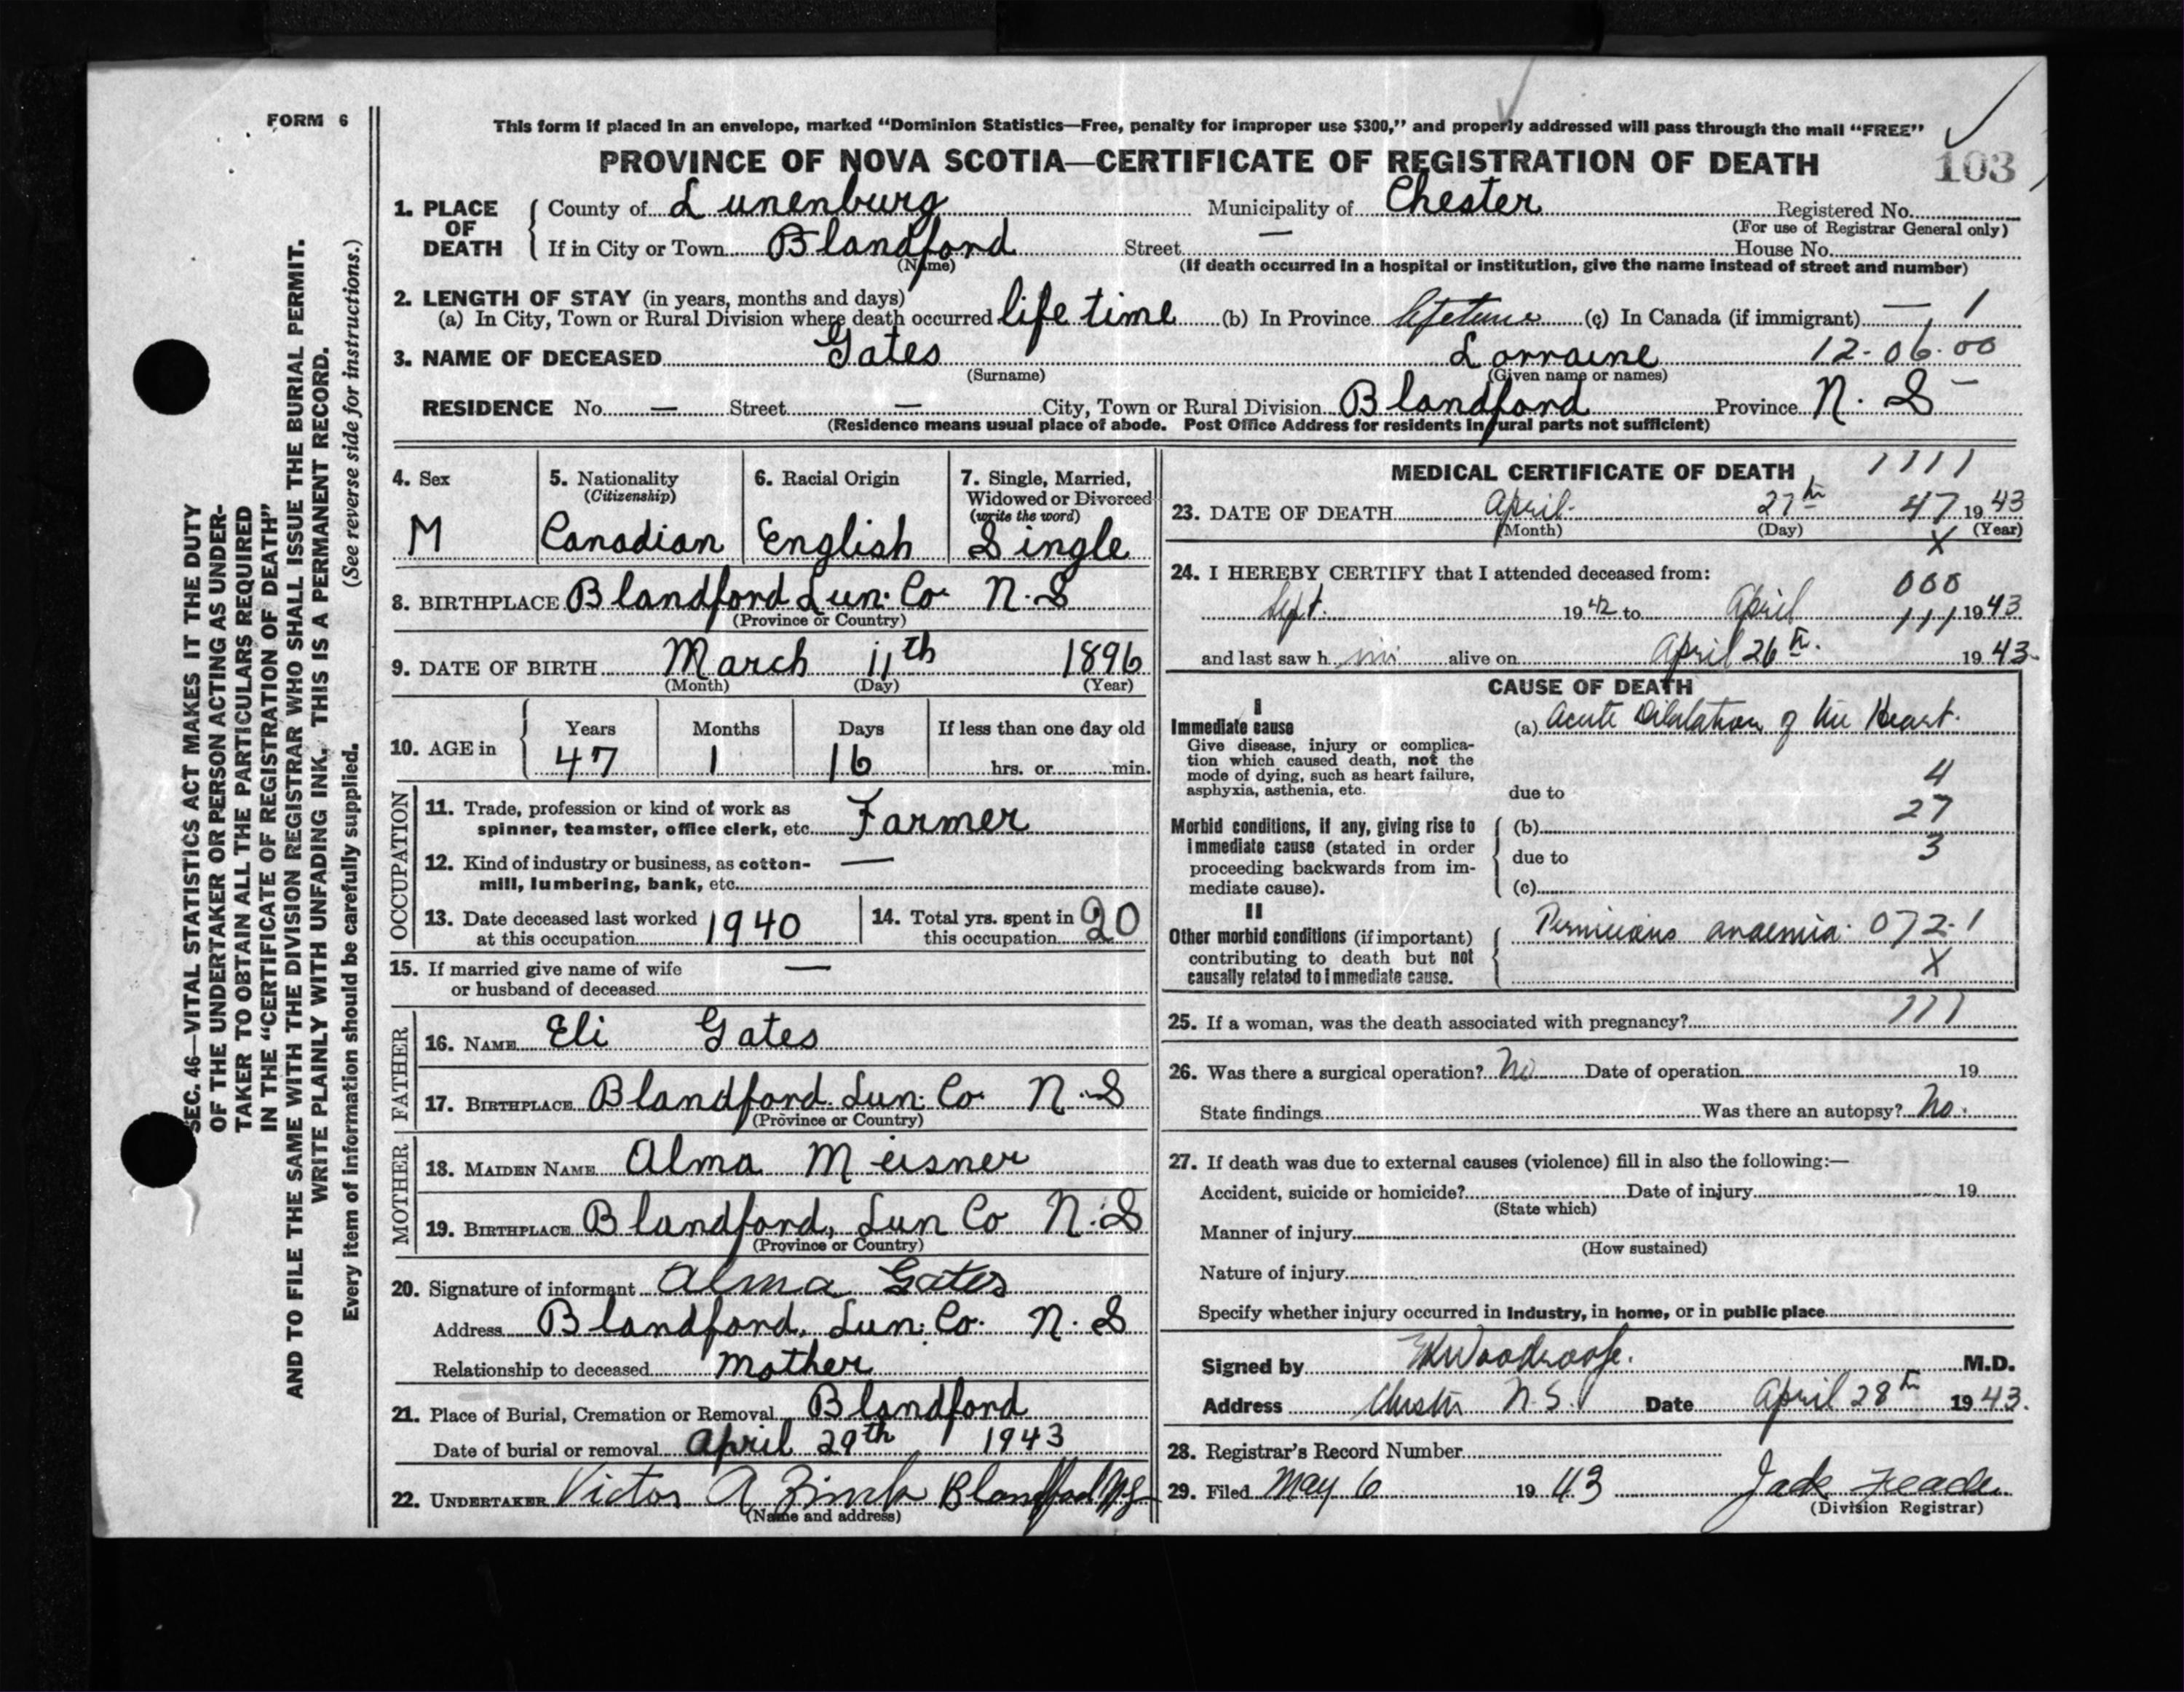 FORM 6
This form if placed in an envelope, marked “Dominion Statistics—Free, penalty for improper use $300,” and properly addressed will pass through the mail “FREE”
PROVINCE OF NOVA SCOTIA—CERTIFICATE OF REGISTRATION OF DEATH
103
1. PLACE OF DEATH
County of Lunenburg Municipality of Chester Registered No.
(For use of Registrar General only)
If in City or Town Blandford Street — House No.
(Name) (If death occurred in a hospital or institution, give the name instead of street and number)
2. LENGTH OF STAY (in years, months and days)
(a) In City, Town or Rural Division where death occurred life time (b) In Province lifetime (c) In Canada (if immigrant) — 1
3. NAME OF DECEASED Gates Lorraine 12-06-00
(Surname) (Given name or names)
RESIDENCE No. — Street — City, Town or Rural Division Blandford Province N. S
(Residence means usual place of abode. Post Office Address for residents in rural parts not sufficient)
4. Sex
M
5. Nationality
(Citizenship)
Canadian
6. Racial Origin
English
7. Single, Married,
Widowed or Divorced
(write the word)
Single
8. BIRTHPLACE Blandford Lun. Co. N. S
(Province or Country)
9. DATE OF BIRTH March 11th 1896
(Month) (Day) (Year)
10. AGE in
Years Months Days If less than one day old
47 1 16 hrs. or min.
OCCUPATION
11. Trade, profession or kind of work as
spinner, teamster, office clerk, etc. Farmer
12. Kind of industry or business, as cotton- —
mill, lumbering, bank, etc.
13. Date deceased last worked
at this occupation 1940
14. Total yrs. spent in
this occupation 20
15. If married give name of wife —
or husband of deceased
FATHER
16. NAME Eli Gates
17. BIRTHPLACE Blandford. Lun. Co. N. S
(Province or Country)
MOTHER
18. MAIDEN NAME Alma Meisner
19. BIRTHPLACE Blandford, Lun Co N. S
(Province or Country)
20. Signature of informant Alma Gates
Address Blandford, Lun. Co. N. S
Relationship to deceased Mother
21. Place of Burial, Cremation or Removal Blandford
Date of burial or removal April 29th 1943
22. UNDERTAKER Victor A Zinck Blandford N S
(Name and address)
MEDICAL CERTIFICATE OF DEATH 1111
23. DATE OF DEATH April 27th 47 1943
(Month) (Day) (Year)
X
24. I HEREBY CERTIFY that I attended deceased from:
000
Sept. 1942 to April 111 1943
and last saw h im alive on April 26th. 1943.
CAUSE OF DEATH
I
Immediate cause
Give disease, injury or complica-
tion which caused death, not the
mode of dying, such as heart failure,
asphyxia, asthenia, etc.
(a) Acute Dilalation of the Heart.
4
due to
27
Morbid conditions, if any, giving rise to
immediate cause (stated in order
proceeding backwards from im-
mediate cause).
(b)
due to 3
(c)
II
Other morbid conditions (if important)
contributing to death but not
causally related to immediate cause.
Pernicious anaemia. 072.1
X
25. If a woman, was the death associated with pregnancy? 111
26. Was there a surgical operation? No Date of operation 19
State findings Was there an autopsy? No.
27. If death was due to external causes (violence) fill in also the following:—
Accident, suicide or homicide? Date of injury 19
(State which)
Manner of injury
(How sustained)
Nature of injury
Specify whether injury occurred in Industry, in home, or in public place
Signed by Woodroofe. M.D.
Address Chester N.S. Date April 28th 1943.
28. Registrar's Record Number
29. Filed May 6 1943 Jack
(Division Registrar)
SEC. 46—VITAL STATISTICS ACT MAKES IT THE DUTY
OF THE UNDERTAKER OR PERSON ACTING AS UNDER-
TAKER TO OBTAIN ALL THE PARTICULARS REQUIRED
IN THE “CERTIFICATE OF REGISTRATION OF DEATH”
AND TO FILE THE SAME WITH THE DIVISION REGISTRAR WHO SHALL ISSUE THE BURIAL PERMIT.
WRITE PLAINLY WITH UNFADING INK. THIS IS A PERMANENT RECORD.
Every item of information should be carefully supplied. (See reverse side for instructions.)